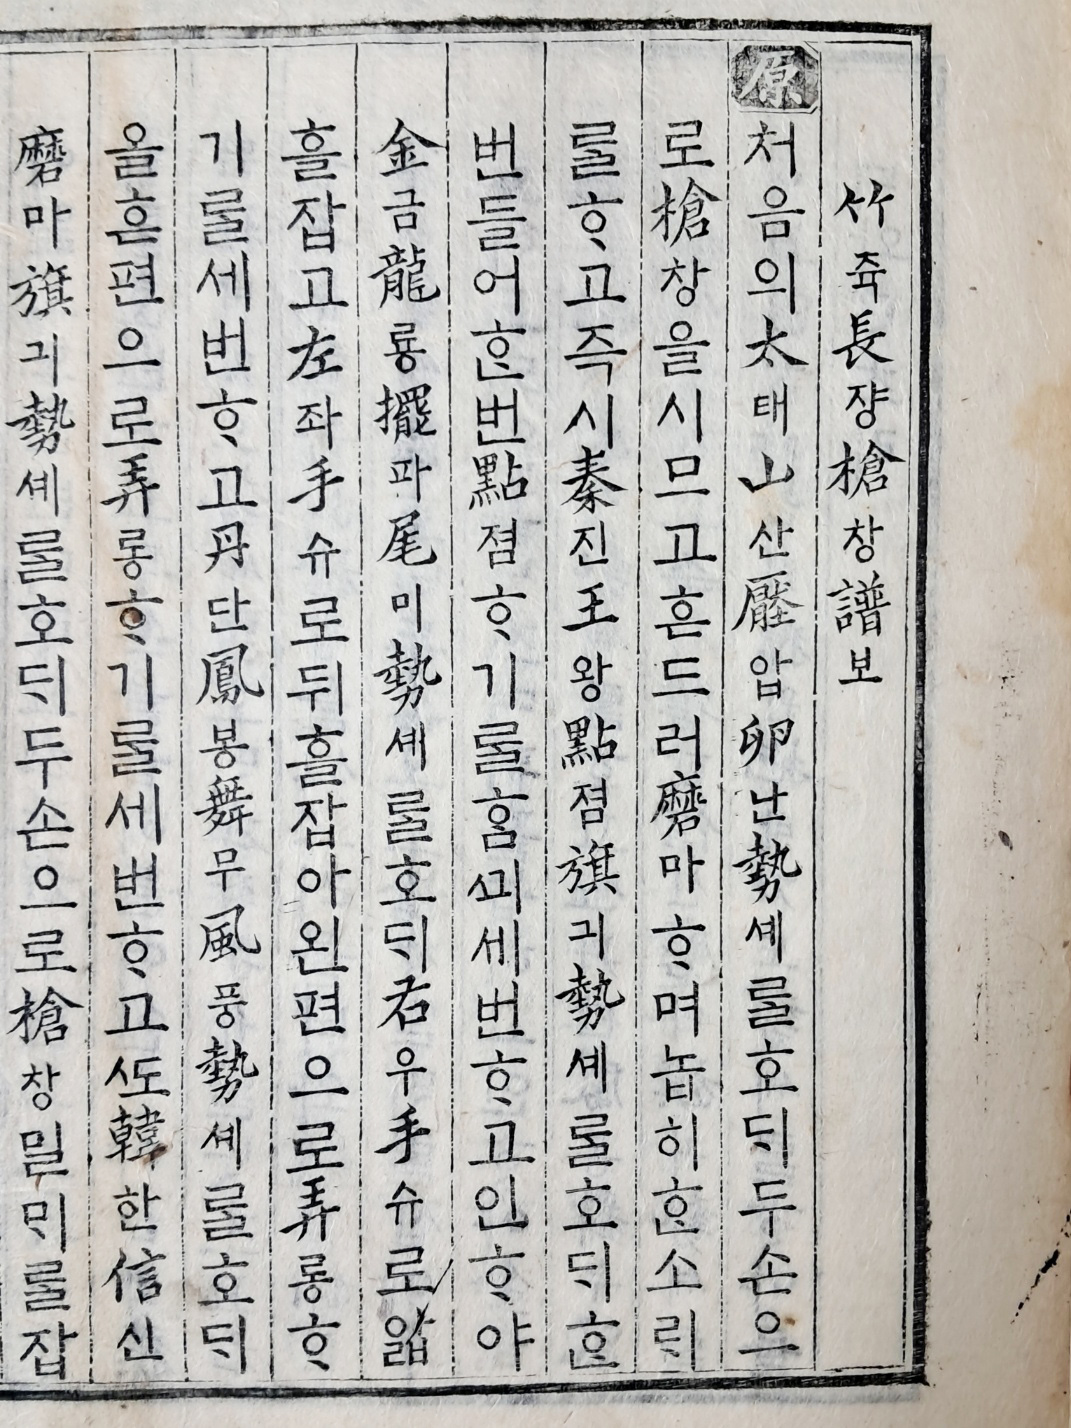 竹쥭長쟝槍창譜보
原처음의太태山산壓압卵난勢셰를호ᄃᆡ두손으
로槍창을시므고흔드러磨마ᄒᆞ며놉히ᄒᆞᆫ소ᄅᆡ
를ᄒᆞ고즉시秦진王왕點졈旗긔勢셰를호ᄃᆡᄒᆞᆫ
번들어ᄒᆞᆫ번點졈ᄒᆞ기를ᄒᆞᆷᄭᅴ세번ᄒᆞ고인ᄒᆞ야
金금龍룡擺파尾미勢셰를호ᄃᆡ右우手슈로앏
흘잡고左좌手슈로뒤흘잡아왼편으로弄롱ᄒᆞ
기를세번ᄒᆞ고丹단鳳봉舞무風풍勢셰를호ᄃᆡ
올흔편으로弄롱ᄒᆞ기를세번ᄒᆞ고ᄯᅩ韓한信신
磨마旗긔勢셰를호ᄃᆡ두손으로槍창밀ᄆᆡ를잡